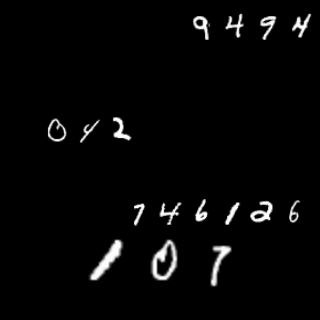 9494
042
746126
107